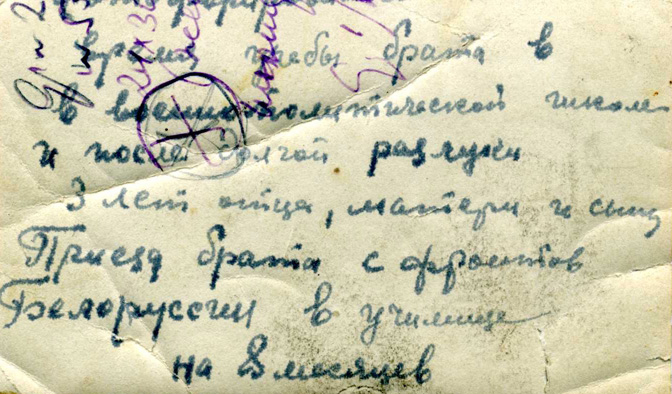 время учебы брата в
в военнополитической школе
и после долгой разлуки
3 лет отца, матери и сына
Приезд брата с фронтов
Белоруссии в училище
на 8 месяцев